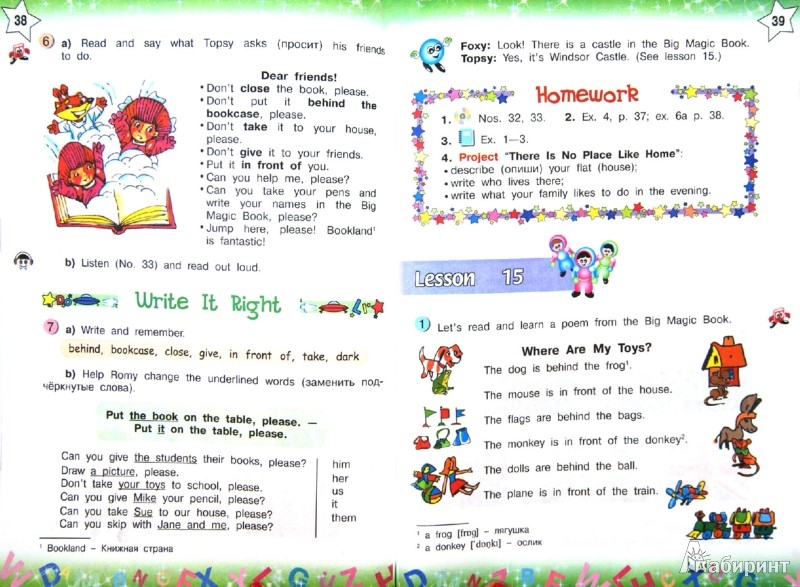 38
6 a) Read and say what Topsy asks (просит) his friends
to do.
Dear friends!
• Don't close the book, please.
• Don't put it behind the
bookcase, please.
• Don't take it to your house,
please.
• Don't give it to your friends.
• Put it in front of you.
• Can you help me, please?
• Can you take your pens and
write your names in the Big
Magic Book, please?
• Jump here, please! Bookland¹
is fantastic!
b) Listen (No. 33) and read out loud.
Write It Right
7 a) Write and remember.
behind, bookcase, close, give, in front of, take, dark
b) Help Romy change the underlined words (заменить под-
чёркнутые слова).
Put the book on the table, please. —
Put it on the table, please.
Can you give the students their books, please?
Draw a picture, please.
Don't take your toys to school, please.
Can you give Mike your pencil, please?
Can you take Sue to our house, please?
Can you skip with Jane and me, please?
him
her
us
it
them
¹ Bookland – Книжная страна
39
Foxy: Look! There is a castle in the Big Magic Book.
Topsy: Yes, it's Windsor Castle. (See lesson 15.)
Homework
1. Nos. 32, 33. 2. Ex. 4, p. 37; ex. 6a p. 38.
3. Ex. 1—3.
4. Project "There Is No Place Like Home":
• describe (опиши) your flat (house);
• write who lives there;
• write what your family likes to do in the evening.
Lesson 15
1 Let's read and learn a poem from the Big Magic Book.
Where Are My Toys?
The dog is behind the frog¹.
The mouse is in front of the house.
The flags are behind the bags.
The monkey is in front of the donkey².
The dolls are behind the ball.
The plane is in front of the train.
¹ a frog [frɒg] – лягушка
² a donkey ['dɒŋkı] – ослик
Лабиринт